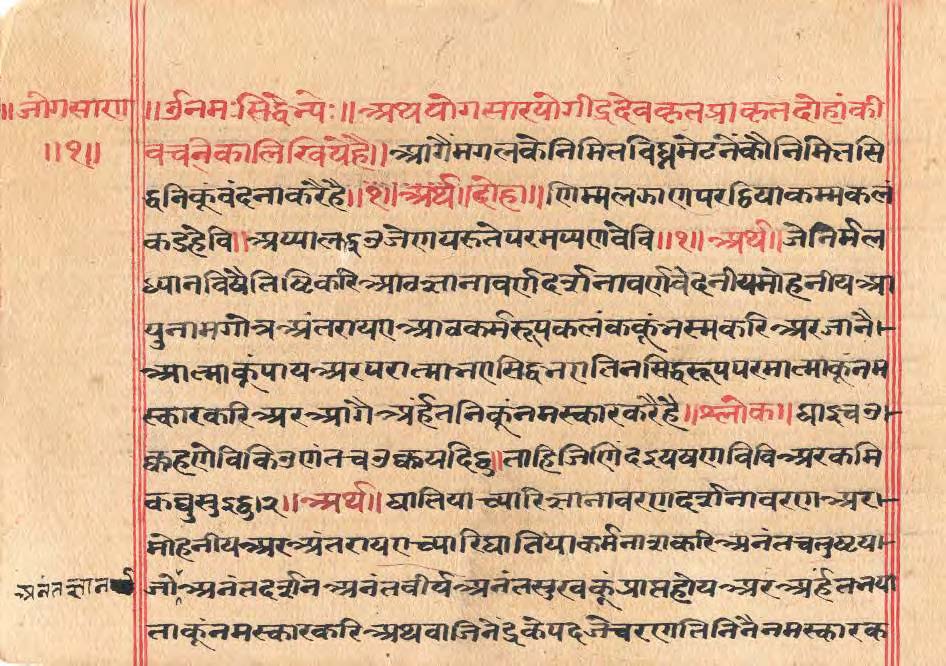 ॥जोगसारण
॥१॥
॥र्उनमःसिद्वेन्येः॥अथयोगसारयोगीद्रदेवकृतप्राकृतदोहांकी
वचनिकालिखियेहै॥आगैंमगलकेनिमितविघ्नमेटनेंकौनिमितसि
द्वनिकूंवंदनाकरैहै॥१॥अर्थ॥दोहा॥णिम्मलझाणपरद्वियाकम्मकलं
कडहेवि॥अप्पालद्ध३जेणपरुतेपरमप्पणवेवि॥१॥अर्थ॥जेनिर्मल
ध्यानविषैतिष्टिकरिआवज्ञानावर्णदर्शनावर्णवेदनीयमोहनीयआ
युनामगोत्रअंतरायएआवकर्मरूपकलंककूंनस्मकरिअरजानै
आत्माकूंपायअरपरात्मानएसिद्वनएतिनसिद्वरूपपरमात्माकूंनम
स्कारकरिअरआगैअर्हतनिकूंनमस्कारकरैहै॥श्लोक॥घाइच३
क्कहणेविकि३णंतच३क्कपदिठ्ठ॥ताहिजिणिंद
॥अर्थ॥घातियाच्यारिज्ञानावरणदर्शनावरणअर
मोहनीयअरअंतरायएच्यारिघातियाकर्मनाशकरिअनंतचतुष्टया
अनंतज्ञान
जोअनंतदर्शनअनंतवीर्यअनंतसुखकूंप्राप्तहोयअरअर्हतनया
ताकूंनमस्कारकरिअथवाजिनेंद्रकेपदजेचरणतिनिनैनमस्कारक